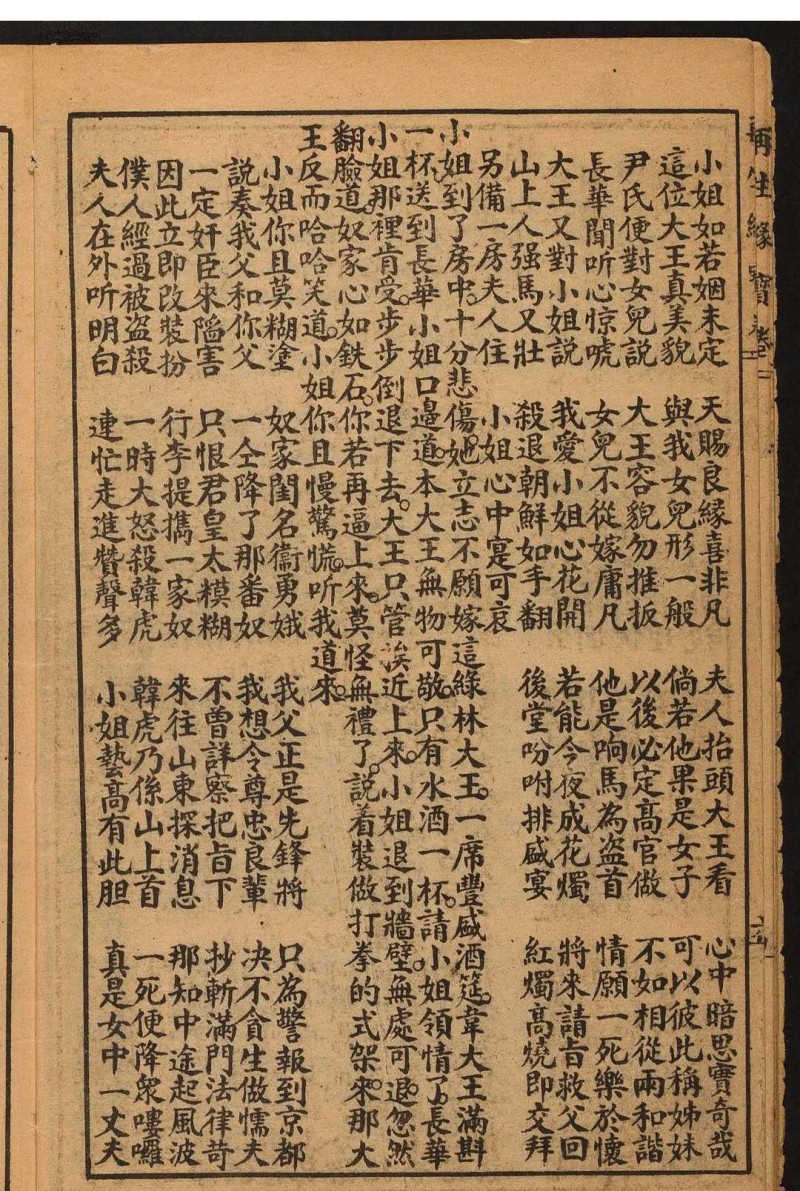 小姐如若姻未定　天賜良緣喜非凡　夫人抬頭大王看　心中暗思實奇哉
這位大王真美貌　與我女兒形一般　倘若他果是女子　可以彼此稱姊妹
尹氏便對女兒說　大王容貌勿推扳　以後必定高官做　不如相從兩和諧
長華聞听心惊唬　女兒不從嫁庸凡　他是响馬為盗首　情願一死樂於懷
大王又對小姐說　我愛小姐心花開　若能今夜成花燭　將來請旨救父回
山上人强馬又壯　殺退朝鮮如手翻　後堂吩咐排盛宴　紅燭高燒即交拜
另備一房夫人住　小姐心中寔可哀
小姐到了房中。十分悲傷。她立志不願嫁這綠林大王。一席豐盛酒筵。韋大王滿斟
一杯。送到長華小姐口邉道。本大王無物可敬。只有水酒一杯。請小姐領情了。長華
小姐那裡肯受。步步倒退下去。大王只管挨近上來。小姐退到牆壁。無處可退。忽然
翻臉道。奴家心如鉄石。你若再逼上來。莫怪無禮了。說着裝做打拳的式架來。那大
王反而哈哈笑道。小姐你且慢驚慌。听我道來。
小姐你且莫糊塗　奴家閨名衞勇娥　我父正是先鋒將　只為警報到京都
說奏我父和你父　一仝降了那番奴　我想令尊忠良輩　决不貪生做懦夫
一定奸臣來陷害　只恨君皇太糢糊　不曾詳察把旨下　抄斬滿門法律苛
因此立即改裝扮　行李提攜一家奴　來往山東探消息　那知中途起風波
僕人經過被盗殺　一時大怒殺韓虎　韓虎乃係山上首　一死便降衆嘍囉
夫人在外听明白　連忙走進贊聲多　小姐藝高有此胆　真是女中一丈夫
再生緣寳卷二